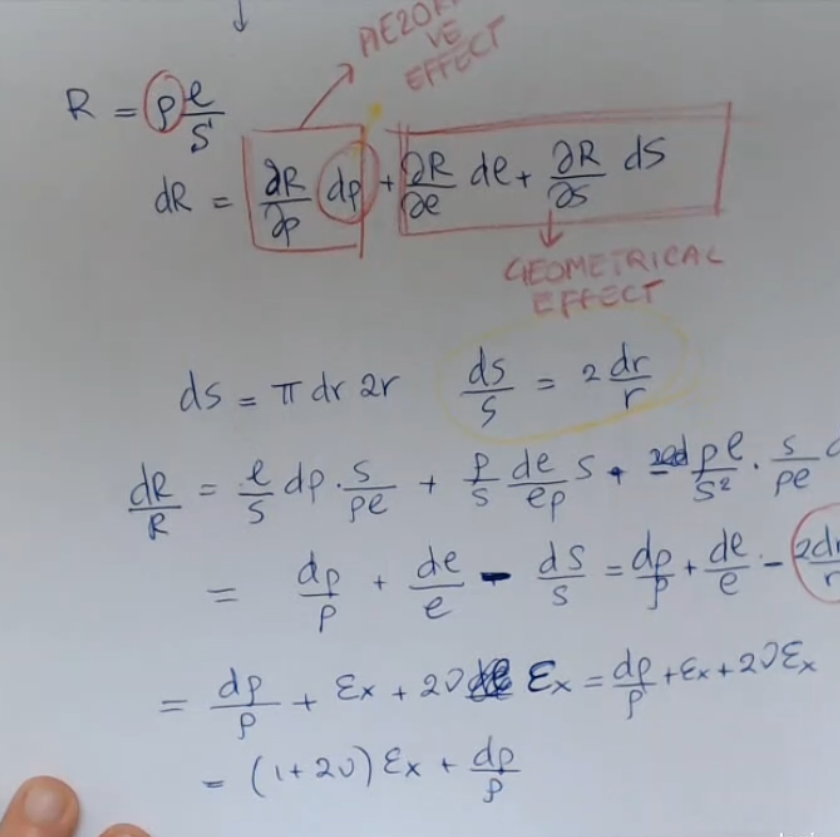 VE
EFFECT
R = ρ e/S
dR = ∂R/∂ρ dρ + ∂R/∂e de + ∂R/∂s dS
GEOMETRICAL
EFFECT
ds = π dr 2r   ds/s = 2 dr/r
dR/R = e/s dρ · s/ρe + ρ/s de/eρ s - ρe/s² · s/ρe
= dρ/ρ + de/e - ds/s = dρ/ρ + de/e - 2dr/r
= dρ/ρ + εx + 2ν εx = dρ/ρ + εx + 2νεx
= (1+2ν) εx + dρ/ρ